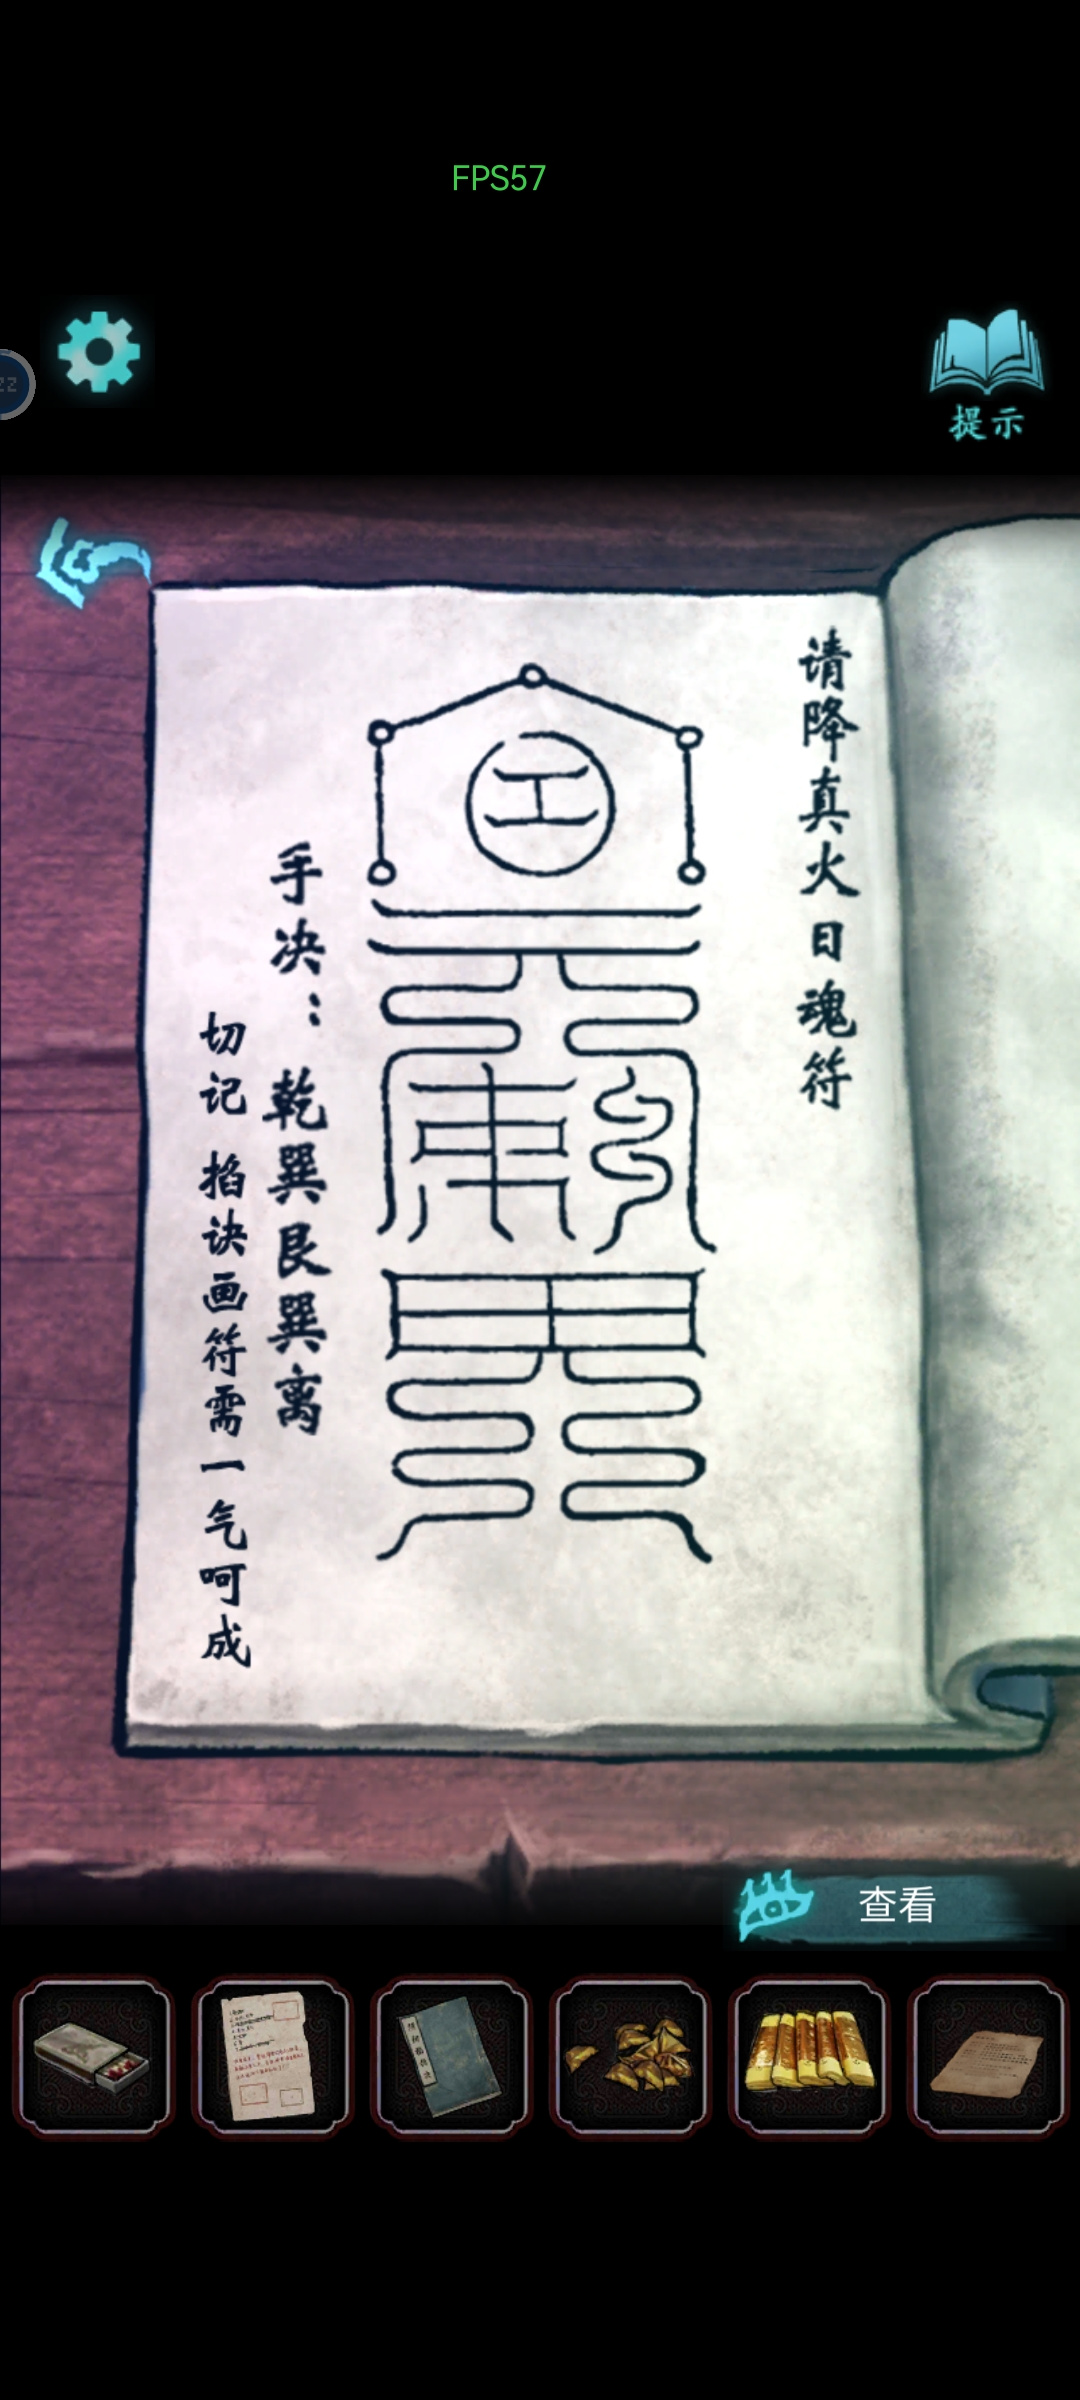 FPS57
22
提示
请降真火日魂符
手决：乾巽艮巽离
切记 掐诀画符需一气呵成
查看